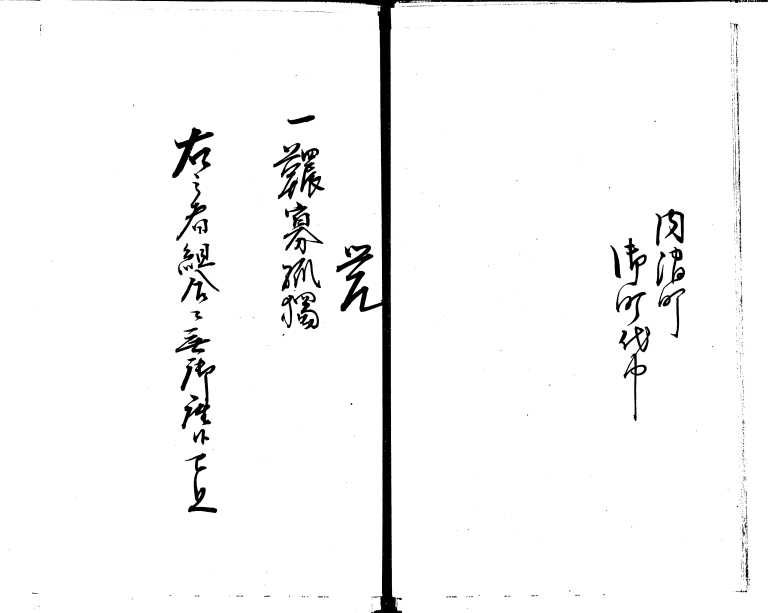 内濱町
御町代中
覚
一 鰥寡孤獨
右之者組合ニ無御座候已上